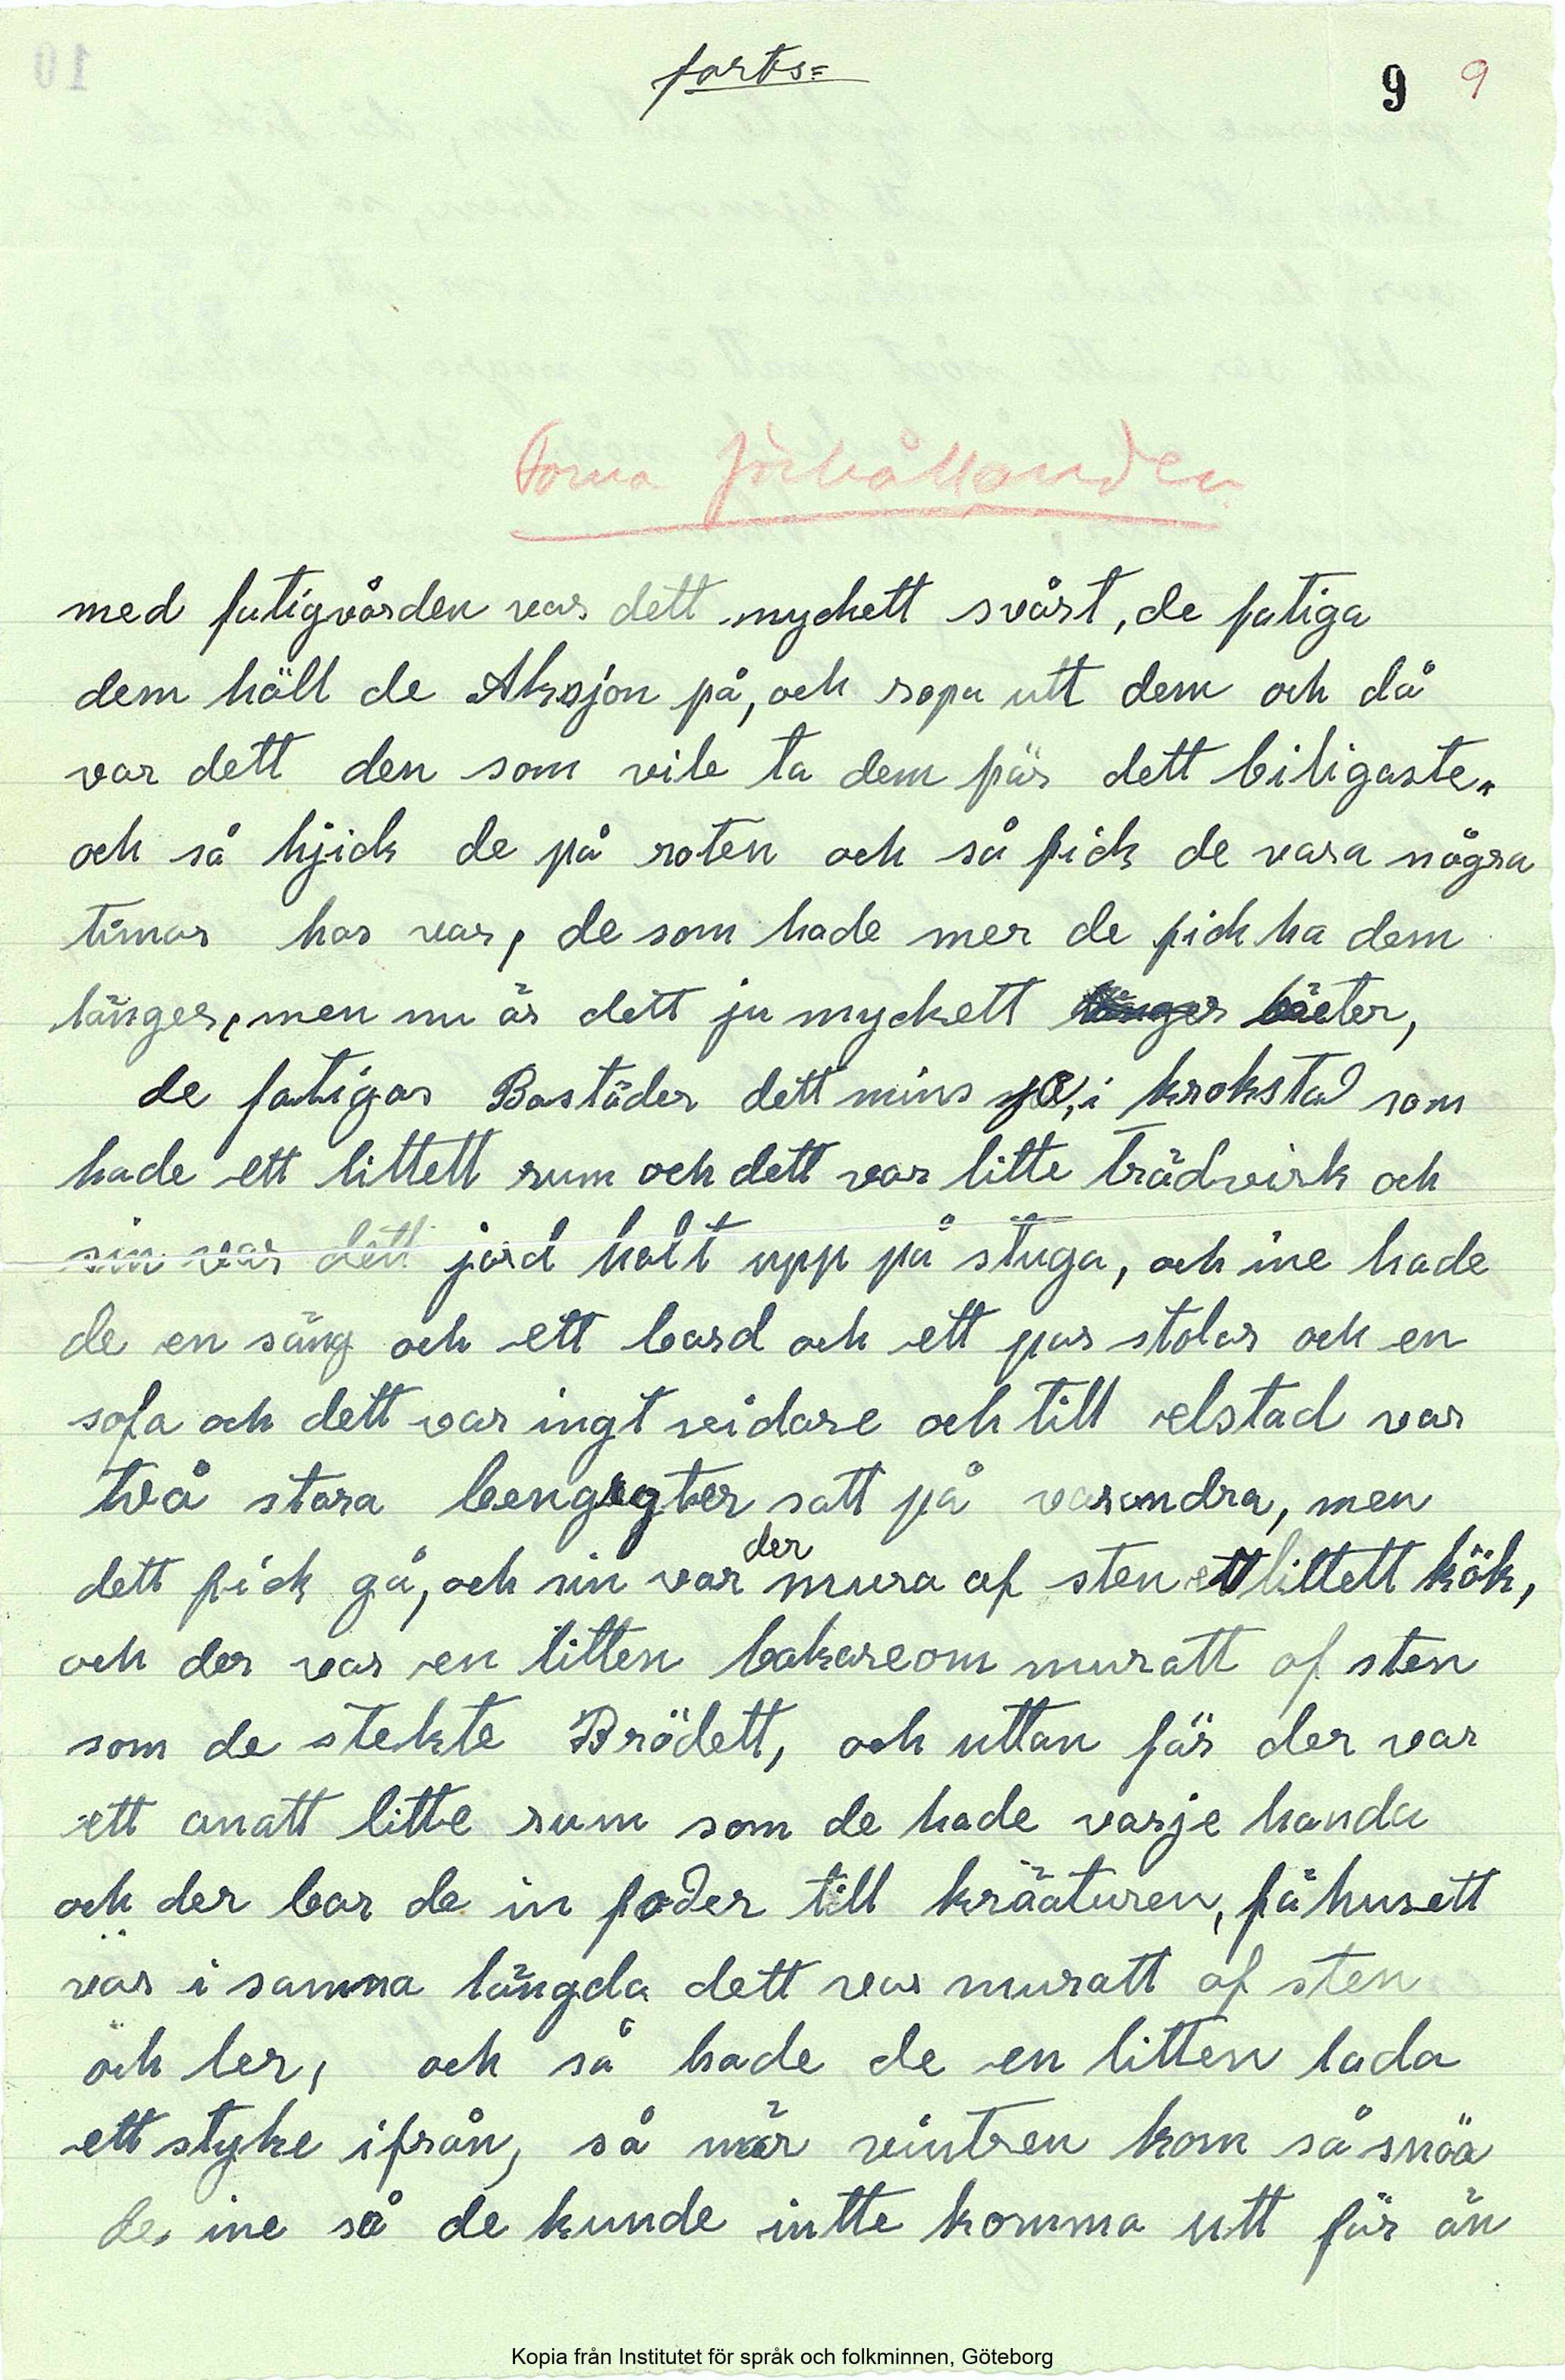 forts=
9 9
Forna förhållanden
med fatigvården var dett myckett svårt, de fatiga
dem höll de Aksjon på, och ropa utt dem och då
var dett den som vile ta dem får dett biligaste.
och så hjick de på roten och så fick de vara några
timar hos var, de som hade mer de fick ha dem
länger, men nu är dett ju myckett bäeter,
de fatigas Bostäder dett mins ja, i krokstad som
hade ett littett rum och dett var litte trädvirk och
sin var dett jord holt upp på stuga, och ine hade
de en säng och ett bord och ett par stolar och en
sofa och dett var ingt veidare och till elstad var
två stora satt på varandra, men
dett fick gå, och sin var der mura af sten ett littett kök,
och der var en litten bakareom muratt af sten
som de stekte Brödett, och uttan får der var
ett anatt litte rum som de hade varje handa
och der bar de in foder till kräaturen, fähusett
var i samma längda dett var muratt af sten
och ler, och så hade de en litten lada
ett styke ifrån, så när vintren kom så snöa
de ine så de kunde intte komma utt får än
Kopia från Institutet för språk och folkminnen, Göteborg